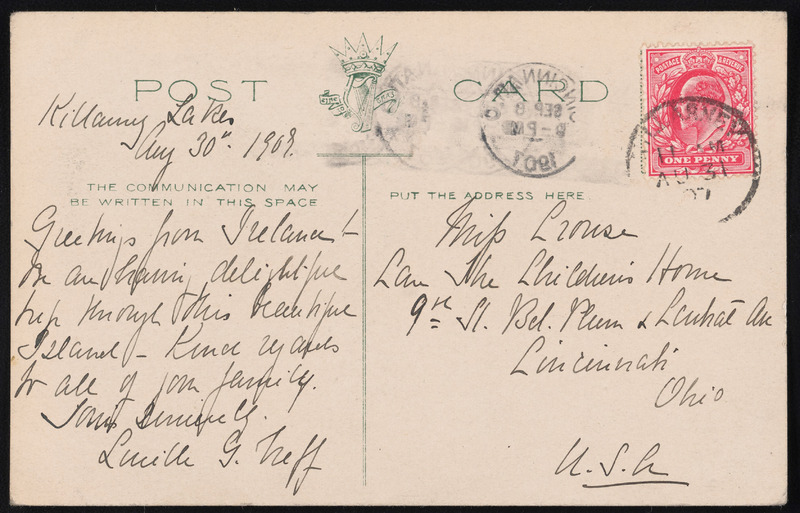 POST CARD
Killarney Lakes
Aug 30th 1907.
THE COMMUNICATION MAY
BE WRITTEN IN THIS SPACE
Greetings from Ireland -
We are having delightful
trip through this beautiful
Island - Kind regards
to all of your family.
Yours Sincerely.
Lucille G.
POSTAGE & REVENUE
ONE PENNY
KILLARNEY
11 AM
AU 31
07
CINCINNATI
SEP 8
8-PM
1907
PUT THE ADDRESS HERE
Miss Crouse
Care The Children's Home
9th St. Bet. Plum & Central Ave
Cincinnati
Ohio
U.S.A